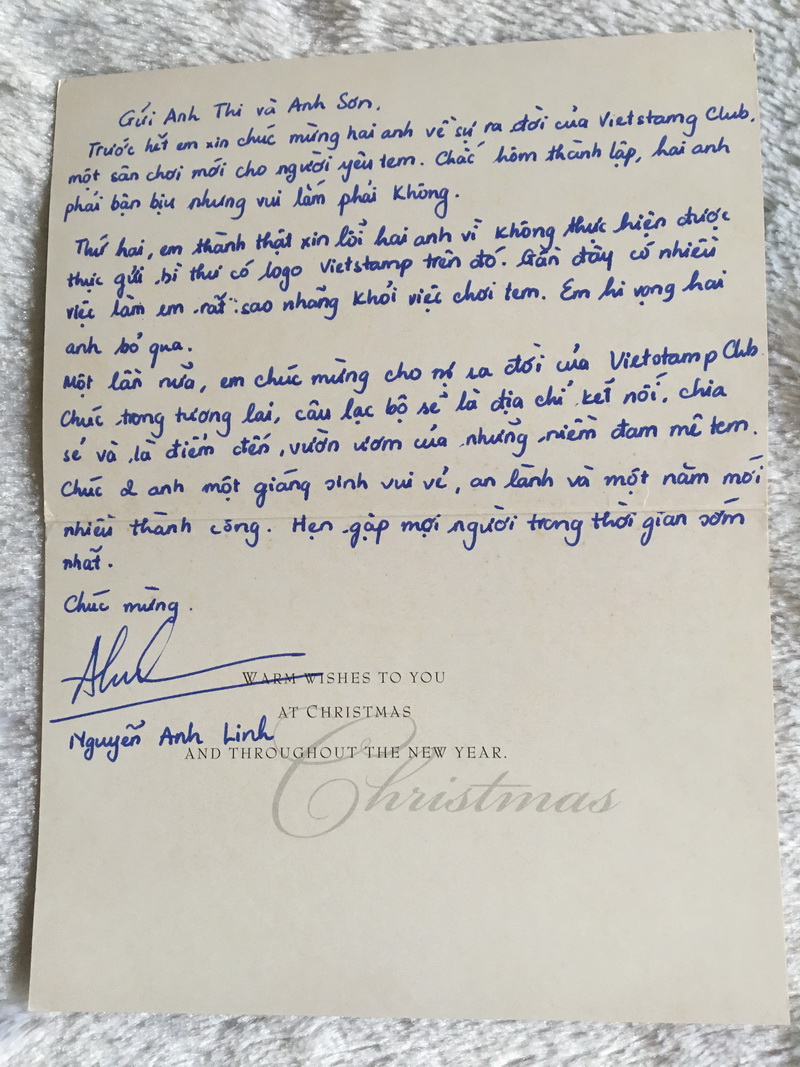 Gửi Anh Thi và Anh Sơn.
Trước hết em xin chúc mừng hai anh về sự ra đời của Vietstamg Club.
một sân chơi mới cho người yêu tem. Chắc hôm thành lập, hai anh
phải bận bịu nhưng vui lắm phải không.
Thứ hai, em thành thật xin lỗi hai anh vì không thực hiện được
thực gửi bì thư có logo Vietstamp trên đó. Gần đây có nhiều
việc làm em rất sao nhãng khỏi việc chơi tem. Em hi vọng hai
anh bỏ qua.
Một lần nữa, em chúc mừng cho sự ra đời của Vietstamp Club
Chúc trong tương lai, câu lạc bộ sẽ là địa chỉ kết nối, chia
sẻ và là điểm đến, vườn ươm của những niềm đam mê tem.
Chúc 2 anh một giáng sinh vui vẻ, an lành và một năm mới
nhiều thành công. Hẹn gặp mọi người trong thời gian sớm
nhất.
Chúc mừng.
WARM WISHES TO YOU
AT CHRISTMAS
Nguyễn Anh Linh
AND THROUGHOUT THE NEW YEAR.
Christmas